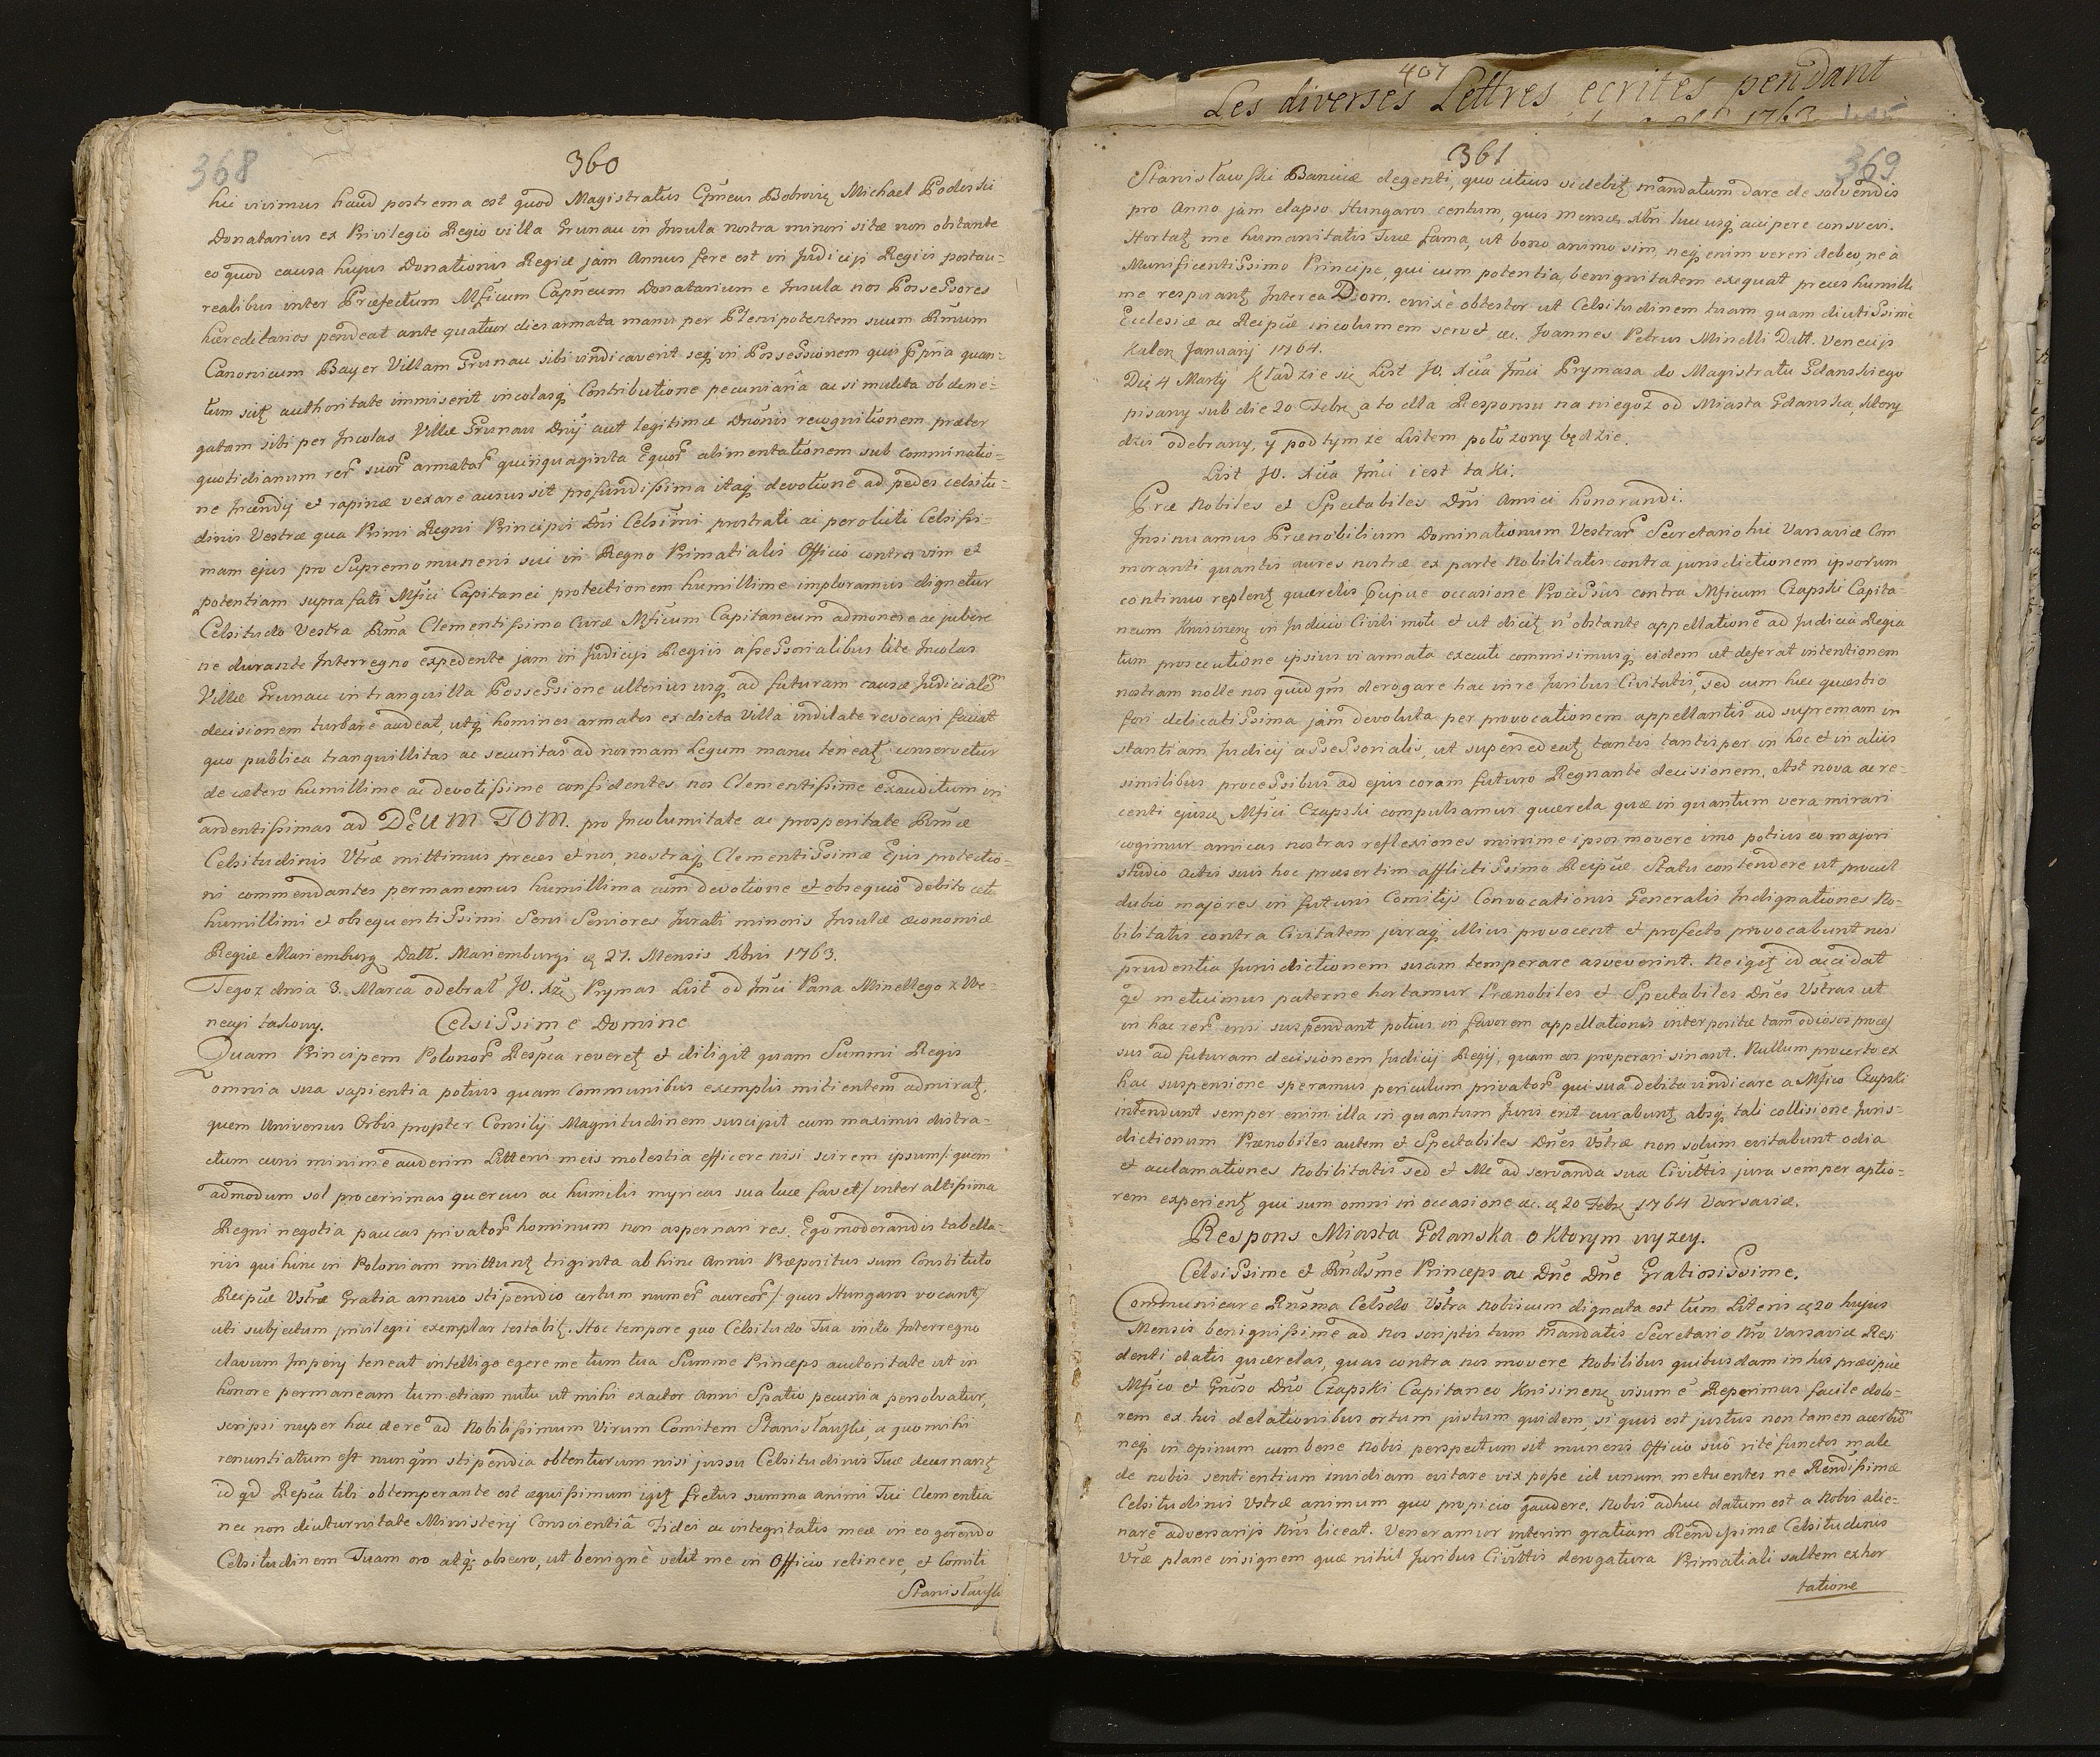 368
360
hic vivimus haud postrema est quod Magistratus Cpneus Bobrovię Michael Podoski
Donatarius ex Privilegio Regio villa Grunau in Insula nostra minori sitæ non obstante
eo quod causa hujus Donationis Regiæ jam Annus fere est in Judicijs Regiis postcu=
realibus inter Præfectum Mficum Capneum Donatarium e Insula nos Possessores
hæreditarios pendeat ante quatuor dies armata manu per Plenipotentem suum Rmum
Canonicum Bayer Villam Grunau sibi vindicaverit seq in Possessionem quis ppria quan=
tum sciţ authoritate immiserit incolasq Contributione pecuniaria ac si mulcta ob dene=
gatam sibi per Incolas Villæ Grunau Dnij aut legitimæ Dnonis recognitionem præter
quotidianum rer suor armator quinquaginta Equor alimentationem sub comminatio=
ne Incendij et rapinæ vexare ausus sit profundissima itaq devotione ad pedes celsitu=
dinis Vestræ qua Primi Regni Principis Dni Celsimi prostrati ac pervoluti Celsissi=
mam ejus pro Supremo muneris sui in Regno Primatialis Officio contra vim et
potentiam supra fati Mfici Capitanei protectionem humillime imploramus dignetur
Celsitudo Vestra Rma Clementissimo Curæ Mficum Capitaneum admonere ac jubere
ne durante Interregno expedente jam in Judicijs Regiis assessorialibus lite Incolas
Villæ Grunau in tranquilla Possessione ulterius usq ad futuram causæ Judicialem
decisionem turbare audeat, utq homines armatos ex dicta Villa indilate revocari faciat
quo publica tranquillitas ac securitas ad normam Legum manu teneaţ conservetur
de cætero humillime ac devotissime confidentes nos Clementissime exauditum iri
ardentissimas ad DEUM TOM. pro Incolumitate ac prosperitate Rmæ
Celsitudinis Vtræ mittimus preces et nos nostraq Clementissimæ Ejus protectio=
ni commendantes permanemus humillima cum devotione et obsequio debito cetu
humillimi et obsequentissimi Servi Seniores Jurati minoris Insulæ œconomiæ
Regiæ Mariemburg Datt. Mariemburgi ę 27. Mensis Xbris 1763.
Tegoz dnia 3. Marca odebrał JO. Xże Prymas List od Jmci Pana Minellego z We=
necyi takowy. Celsissime Domine
Quam Principem Polonor Respca revereţ et diligit quam Summi Regis
omnia sua sapientia potius quam Communibus exemplis mitientem admiraţ,
quem Universus Orbis propter Consilij Magnitudinem suscipit cum maximis distra=
ctum curis minime auderim Litteris meis molestia efficere nisi scirem ipsum /: quem
admodum sol procerrimas quercus ac humilis myricas sua luce favet / inter altissima
Regni negotia paucas privator hominum non aspernari res. Ego moderandis tabella=
riis qui hinc in Poloniam mittunţ triginta ab hinc Annis Præpositus sum Constituto
Reipcæ Vstræ Gratia annuo stipendio certum numer aureor /: quos Hungaros vocant /
uti subjectum privilegii exemplar testabiţ. Hoc tempore quo Celsitudo Tua inito Interregno
clavum Imperij teneat intelligo egere me tum tua Summe Princeps auctoritate ut in
honore permaneam tum etiam nutu ut mihi exactor Anni Spatio pecunia persolvatur,
scripsi nuper hac de re ad Nobilissimum Virum Comitem Stanisławski, a quo mihi
renuntiatum est nunqm stipendia obtenturum nisi jussu Celsitudinis Tuæ decernanţ
id qd Repca tibi obtemperante est æquissimum igiţ fretus summa animi Tui Clementia
nec non diuturnitate Ministerij Conscientiâ Fidei ac integritatis meæ in eo gerendo
Celsitudinem Tuam oro atq obsecro, ut benignè velit me in Officio retinere, et Comiti
Stanisławski
407
Les diverses Lettres ecrites pendant
1763
361
369
Stanisławski Banciæ degenti, quo citius videbiţ mandatum dare de solvendis
pro Anno jam elapso Hungaros centum, quos mense Xbri huc usq accipere consvevi.
Hortaţ me humanitatis Tuæ fama, ut bono animo sim, neq enim vereri debeo, ne à
Munificentissimo Principe, qui cum potentia, benignitatem exequat preces humilli
me respuanţ Interea Dom. enixè obtestor ut Celsitudinem tuam quam diutissimè
Ecclesiæ ac Reipcæ incolumem servet &c. Joannes Petrus Minelli Datt. Venecijs
Kalen Januarij 1764.
Dię 4 Marty kładzie się List JO. Xcia Jmci Prymasa do Magistratu Gdanskiego
pisany sub die 20 Febr, a to dla Responsu na niegoż od Miasta Gdanska, ktory
dzis odebrany, y pod tym że Listem położony będzie.
List JO. Xcia Jmci iest taki:
Præ Nobiles et Spectabiles Dni Amici honorandi.
Insinuamus Prænobilium Dominationum Vestrar Secretario hic Varsaviæ Com
moranti quantis aures nostræ ex parte Nobilitatis contra jurisdictionem ipsorum
continuo replenţ quærelis pcipue occasione Processus contra Mficum Czapski Capita
neum Knisinenę in Judicio Civili moti et ut diciţ n obstante appellatione ad Judicia Regia
tum prosecutione ipsius vi armata executi commisimusq eidem ut deferat intentionem
nostram nolle nos quid qm derogare hac in re Juribus Civitatis, sed cum hæc quæstio
fori delicatissima jam devoluta per provocationem appellantis ad supremam in
stantiam Judicij assessorialis, ut supersedeaţ tantis tantisper in hoc et in aliis
similibus processibus ad ejus coram futuro Regnante decisionem. Ast nova ac re=
centi ejusdę Mfici Czapski compulsamur quærela quæ in quantum vera mirari
cogimur amicas nostras reflexiones minime ipsos movere imo potius eo majori
studio actis suis hoc præsertim afflictissimo Reipcæ Statu contendere ut procul
dubio majores in futuris Comitijs Convocationis Generalis Indignationes No=
bilitatis contra Civitatem juraq illius provocent et profecto provocabunt nisi
prudentia Jurisdictionem suam temperare asveverint. Ne igiţ id accidat
qd metuimus paterne hortamur Prænobiles et Spectabiles Dnes Vstras ut
in hac rer suspendant potius in favorem appellationis interpositæ tam odiosos proces
sus ad futuram decisionem Judicij Regij, quam eos properari sinant. Nullum pro certo ex
hac suspensione speramus periculum privator qui sua debita vindicare a Mfico Czapski
intendunt semper enim illa in quantum Juris erit curabunţ absq tali collisione Juris=
dictionum Prænobiles autem et Spectabiles Dnes Vstræ non solum evitabunt odia
et acclamationes Nobilitatis sed et Me ad servanda sua Civittis jura semper aptio=
rem experienţ qui sum omni in occasione &c. ę 20 Febr 1764 Varsaviæ.
Respons Miasta Gdanska o ktorym wyzey.
Celsissime et Rndsme Princeps ac Dne Dne Gratiosissime.
Communicare Rnsma Celsdo Vstra Nobiscum dignata est tum Literis ę 20 hujus
Mensis benignissime ad Nos scriptis tum mandatis Secretario Nro Varsaviæ Resi
denti datis quærelas, quas contra nos movere Nobilibus quibusdam in his præcipuè
Mfico et Gnoso Dno Czapski Capitaneo Knisinenę visum ē Reperimus facile dolo=
rem ex his delationibus ortum justum quidem, si quis est justus non tamen acerbum
neq in opinum cum bene Nobis perspectum sit muneris officio suô ritè functos male
de nobis sentientium invidiam evitare vix posse id unum metuentes ne Rendissimæ
Celsitudinis Vstræ animum quo propicio gaudere. Nobis adhuc datum est a Nobis alie=
nare adversarijs Nris liceat. Veneramur interim gratiam Rendissimæ Celsitudinis
Vræ plane insignem quæ nihil Juribus Civittis derogatura Primatiali saltem exhor
tatione